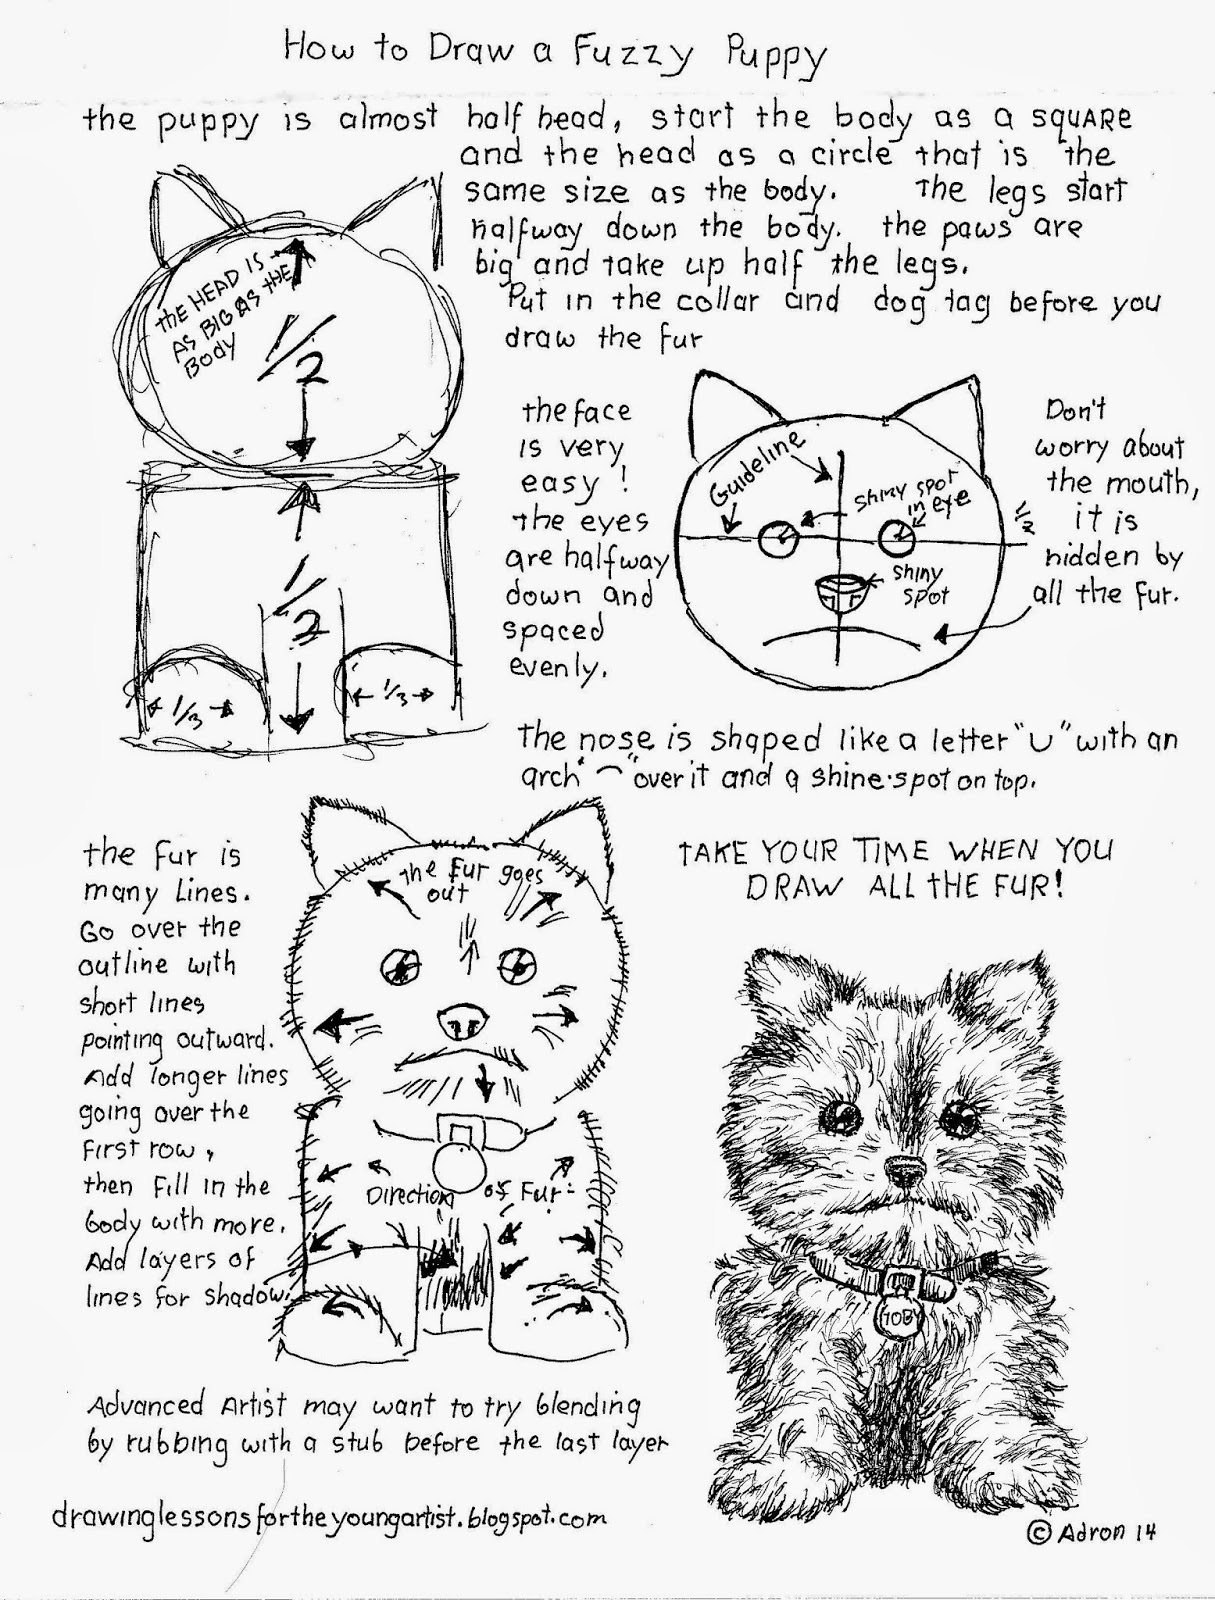 How to Draw a Fuzzy Puppy
the puppy is almost half head, start the body as a SQUARE
and the head as a circle that is the
same size as the body. The legs start
halfway down the body. the paws are
big and take up half the legs.
Put in the collar and dog tag before you
draw the fur
the HEAD IS
AS BIG AS the
Body
1/2
1/2
1/3
1/3
the face
is very
easy!
The eyes
are halfway
down and
spaced
evenly.
Guideline
shiny spot
in eye
shiny
spot
1/2
Don't
worry about
the mouth,
it is
hidden by
all the fur.
The nose is shaped like a letter "U" with an
arch "⌒" over it and a shine-spot on top.
the fur is
many Lines.
Go over the
outline with
short lines
pointing outward.
Add longer lines
going over the
first row,
then fill in the
body with more.
Add layers of
lines for shadow.
The fur goes
out
Direction of Fur
TAKE YOUR TIME WHEN YOU
DRAW ALL THE FUR!
TOBY
Advanced Artist may want to try blending
by rubbing with a stub before the last layer
drawinglessonsfortheyoungartist.blogspot.com
© Adron 14